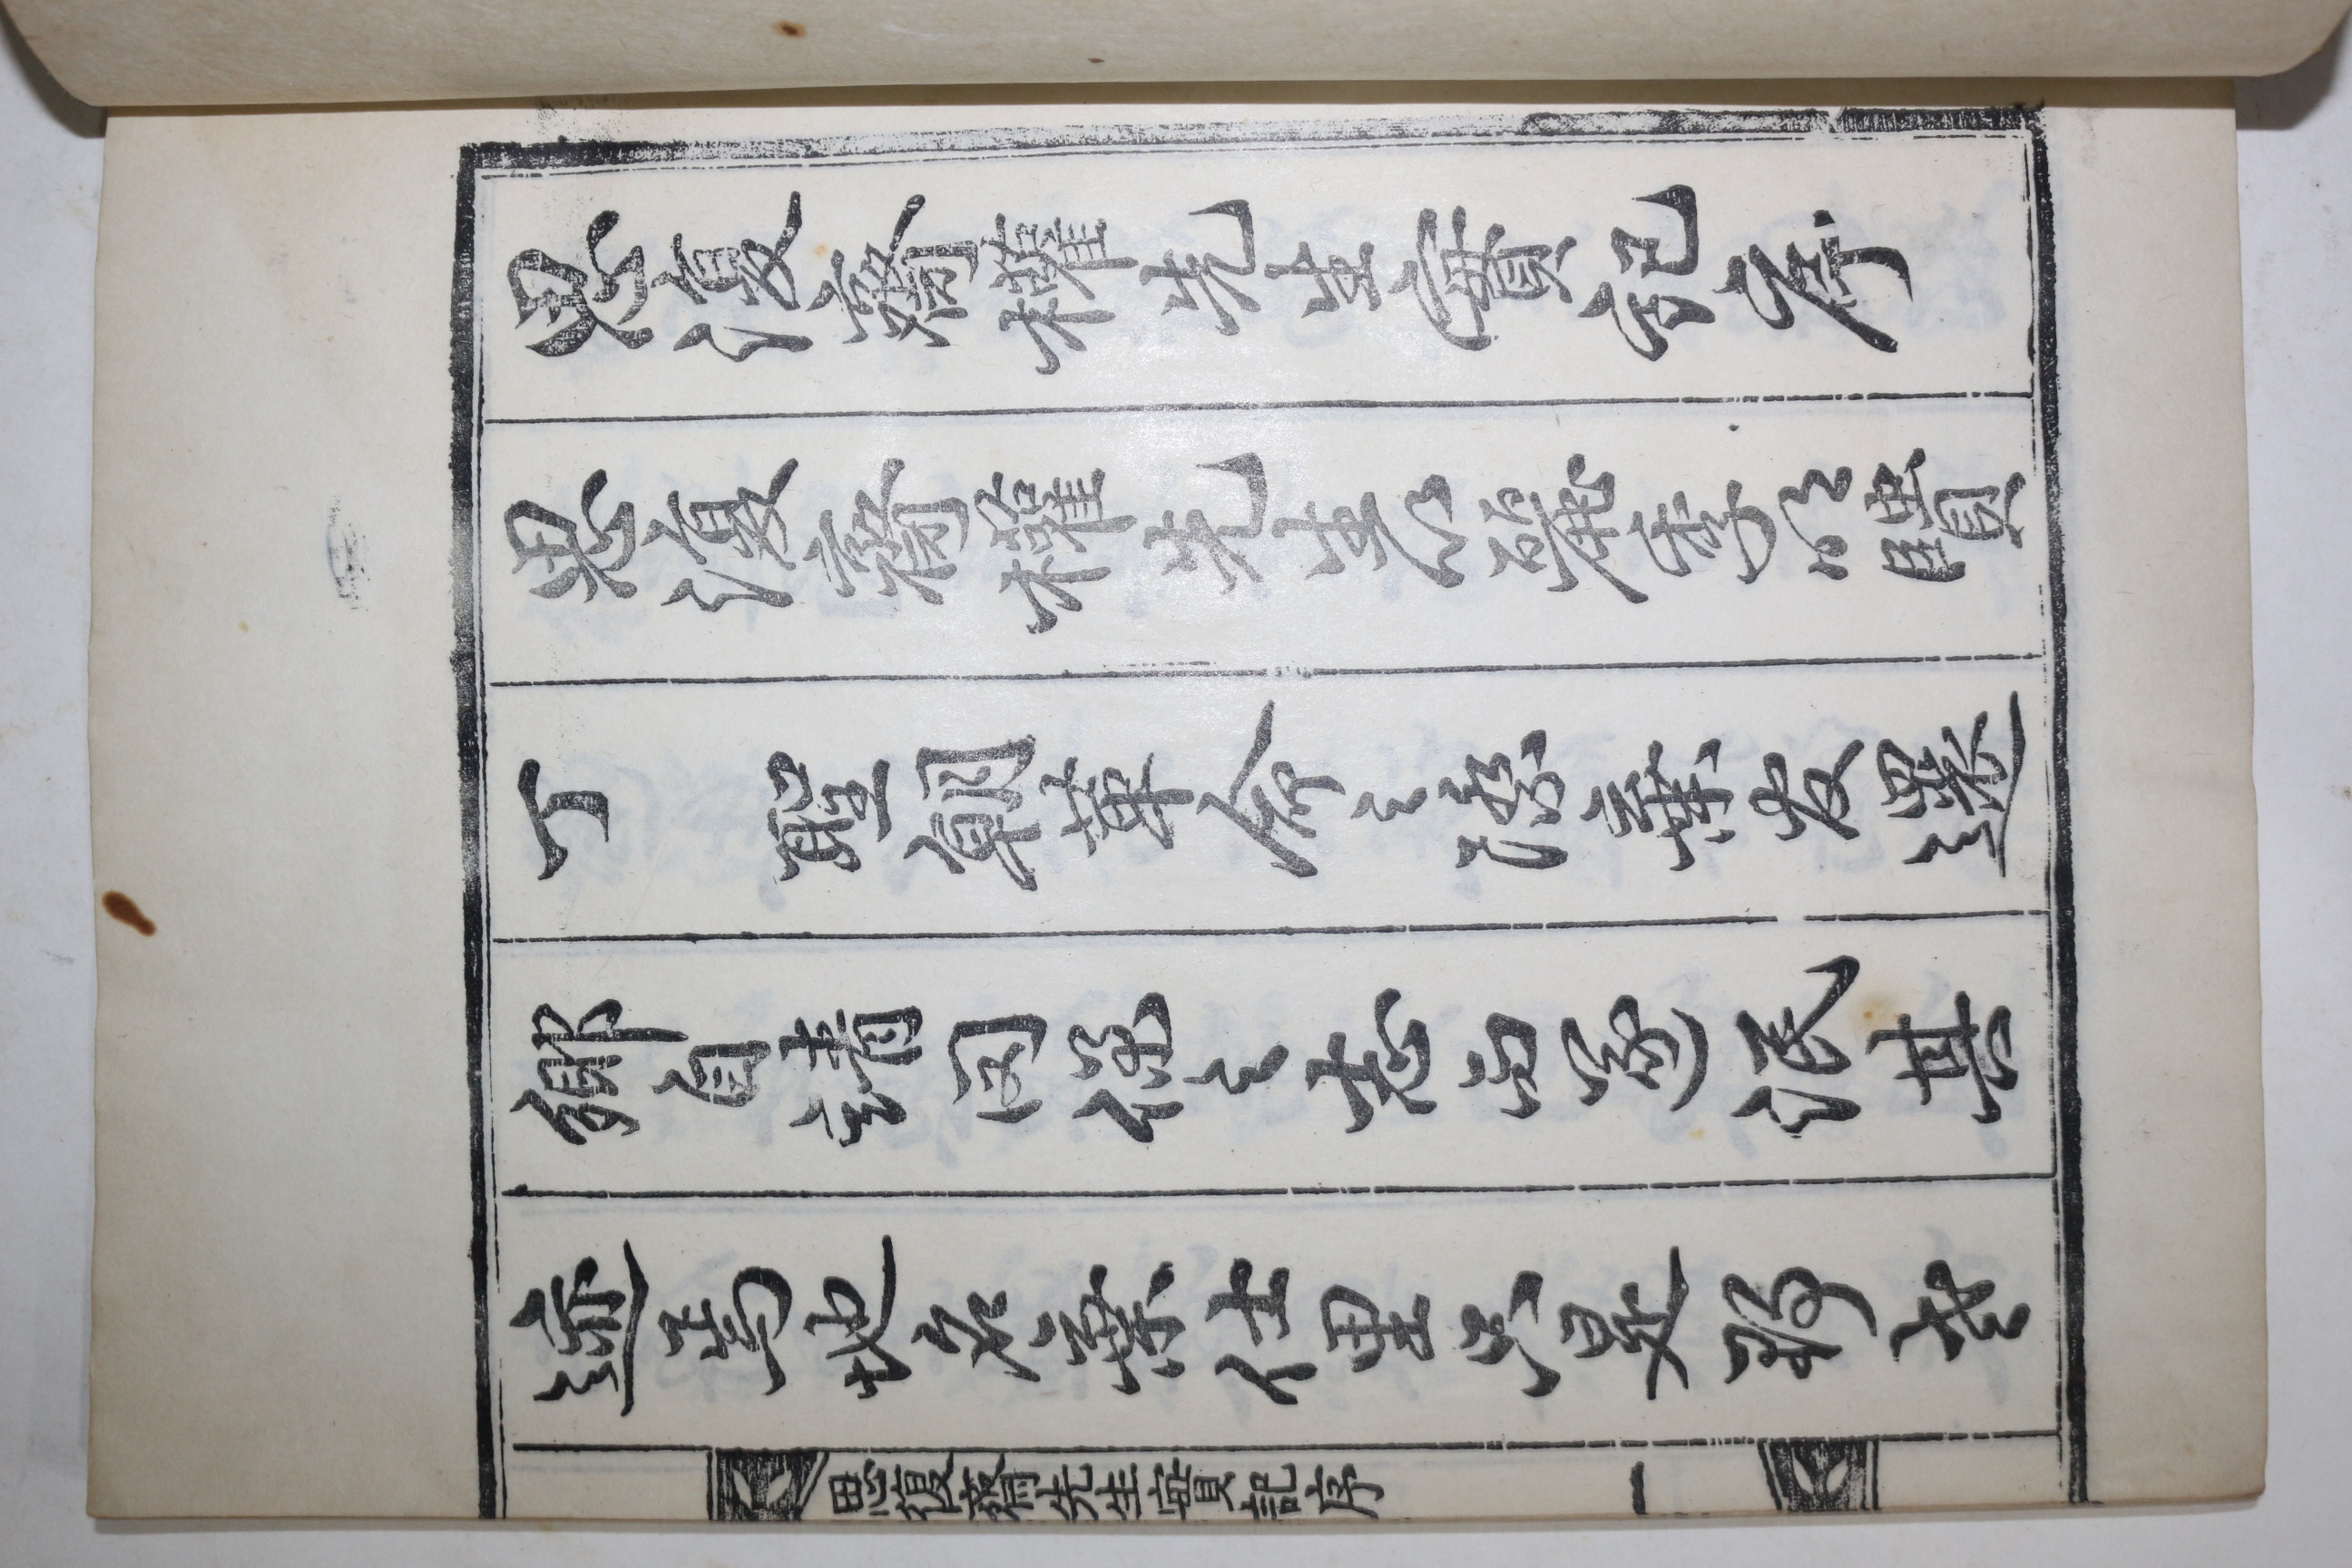 思復齋權先生實記序
思復齋權先生以麗季明
丁 聖朝革命之際棄官還
鄉自靖罔僕之志而遂泯其
迹焉地名棄仕里只是野老
思復齋先生實記序 一